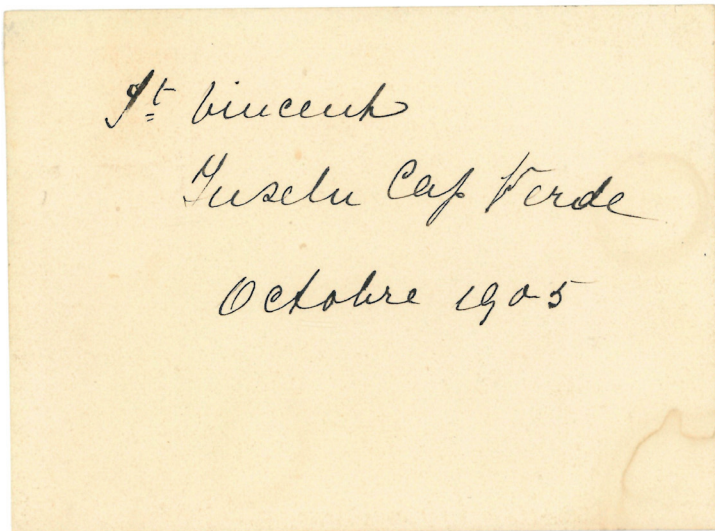 St Vincent
Inseln Cap Verde
Octobre 1905